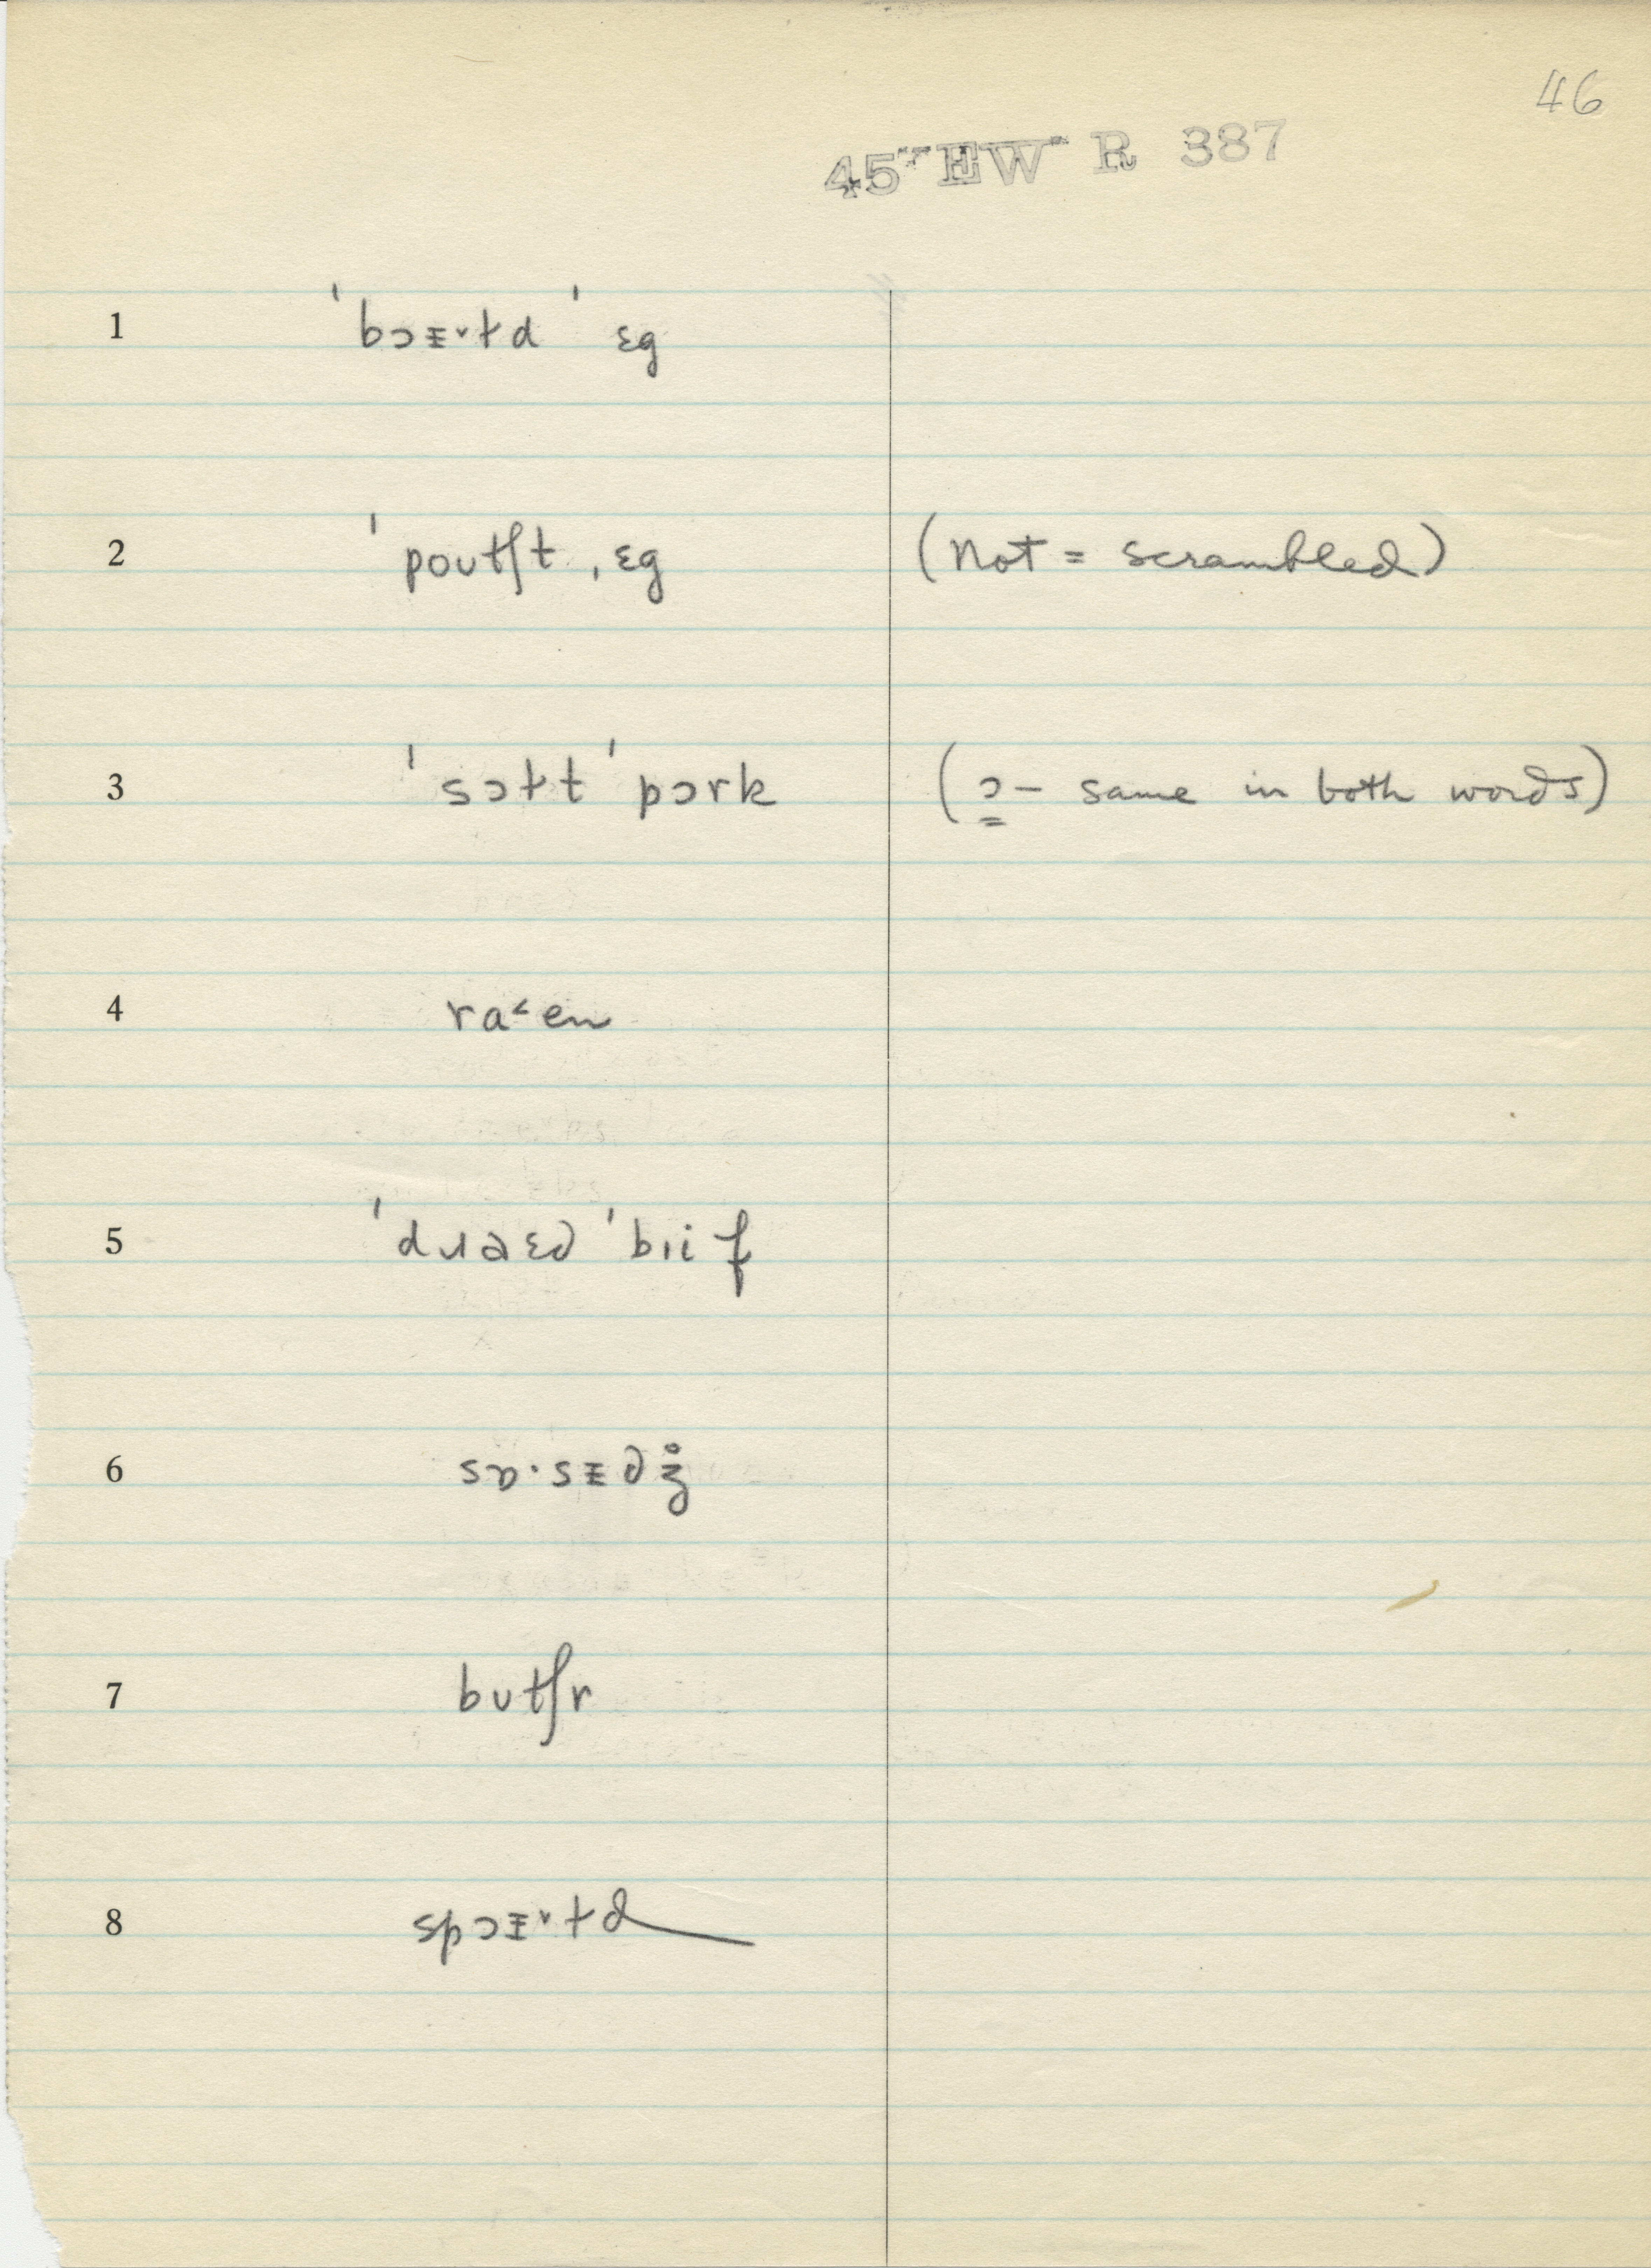 46
45 EW R 387
1 ˈbɔᵻ˞ɫd ˈ ɛg
2 ˈpoutʃt ˌɛg (not = scrambled)
3 ˈsɔɫt ˈpɔrk (ɔ – same in both words)
4 ra˂en
5 ˈdɹaɛ∂ ˈbɪif
6 sɒ·sᵻ∂ʒ̊
7 butʃr
8 spɔᵻ˞ɫd